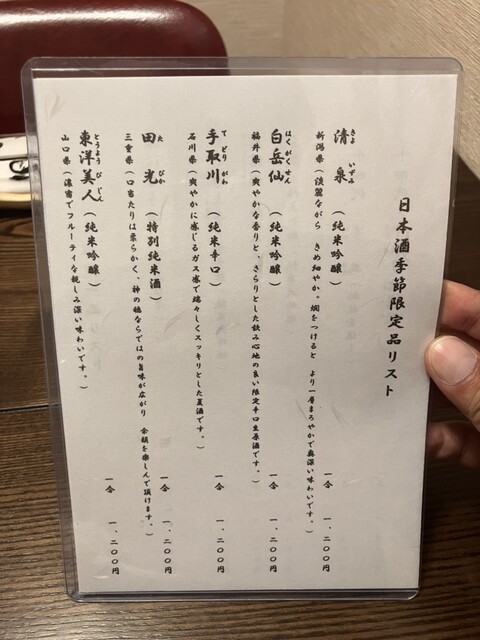 日本酒季節限定品リスト
きよ いずみ
清 泉 (純米吟醸) 一合 一、二〇〇円
新潟県(淡麗ながら きめ細やか。燗をつけると より一層まろやかで奥深い味わいです。)
はくがくせん
白岳仙 (純米吟醸) 一合 一、二〇〇円
福井県(爽やかな香りと、さらりとした飲み心地の良い限定辛口生原酒です。)
てどりがわ
手取川 (純米辛口) 一合 一、二〇〇円
石川県(爽やかに感じるガス感で瑞々しくスッキリとした夏酒です。)
た びか
田 光 (特別純米酒) 一合 一、二〇〇円
三重県(口当たりは柔らかく、神の穂ならではの旨味が広がり 余韻を楽しんで頂けます。)
とうようびじん
東洋美人 (純米吟醸) 一合 一、二〇〇円
山口県(濃密でフルーティな親しみ深い味わいです。)